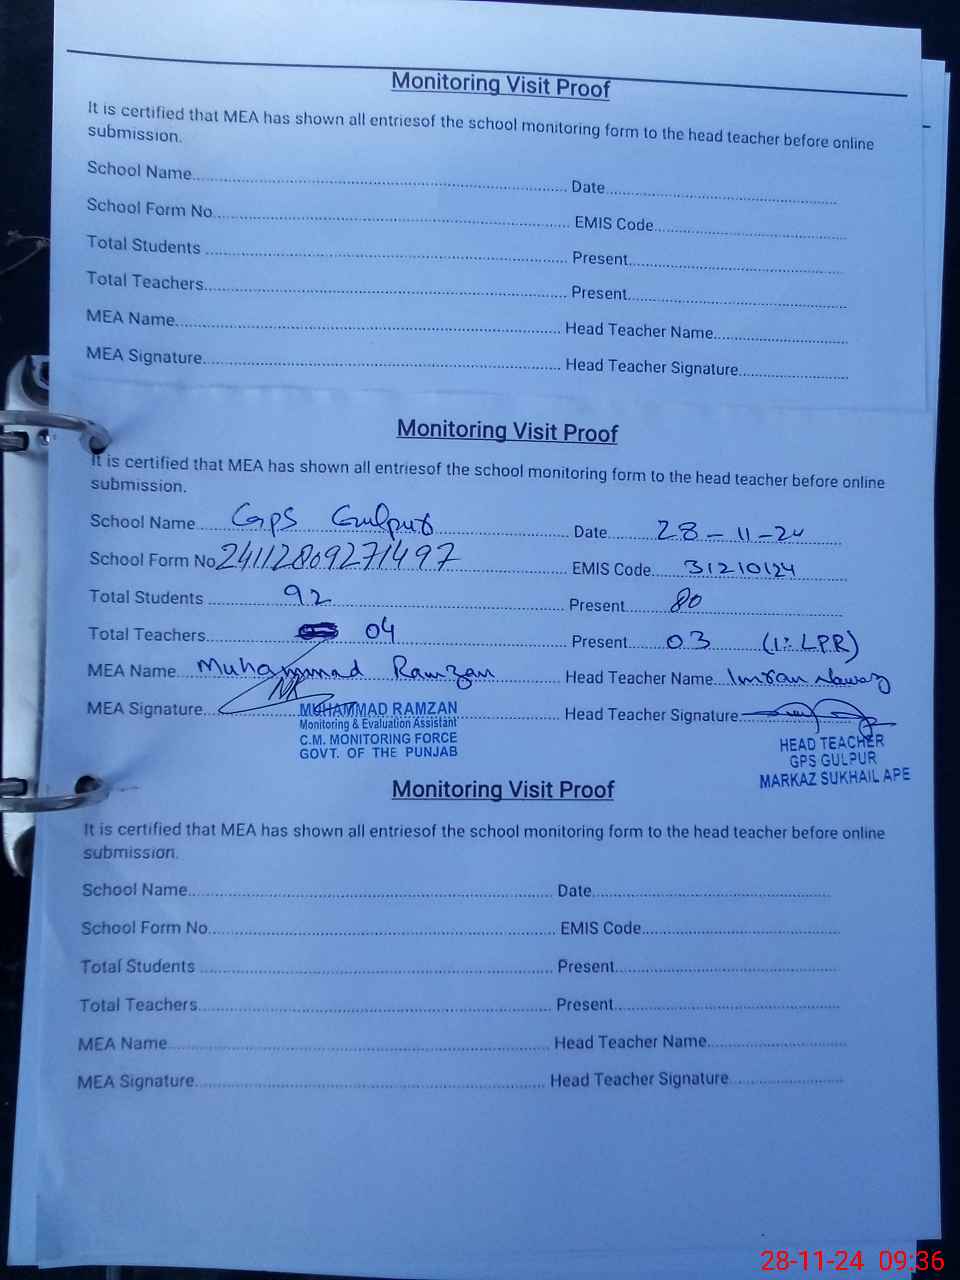 Monitoring Visit Proof
It is certified that MEA has shown all entriesof the school monitoring form to the head teacher before online
submission.
School Name.......... Date..........
School Form No.......... EMIS Code..........
Total Students .......... Present..........
Total Teachers.......... Present..........
MEA Name.......... Head Teacher Name..........
MEA Signature.......... Head Teacher Signature..........
Monitoring Visit Proof
It is certified that MEA has shown all entriesof the school monitoring form to the head teacher before online
submission.
School Name.....GPS Gulpur..... Date.....28-11-24
School Form No 24112809271497 EMIS Code.....31210124
Total Students .....92..... Present.....80
Total Teachers.....04..... Present.....03 (1:LPR)
MEA Name...Muhammad Ramzan Head Teacher Name...Imran Nawaz
MEA Signature.......... Head Teacher Signature..........
MUHAMMAD RAMZAN
Monitoring & Evaluation Assistant
C.M. MONITORING FORCE
GOVT. OF THE PUNJAB
HEAD TEACHER
GPS GULPUR
MARKAZ SUKHAIL APE
Monitoring Visit Proof
It is certified that MEA has shown all entriesof the school monitoring form to the head teacher before online
submission.
School Name.......... Date..........
School Form No.......... EMIS Code..........
Total Students .......... Present..........
Total Teachers.......... Present..........
MEA Name.......... Head Teacher Name..........
MEA Signature.......... Head Teacher Signature..........
28-11-24 09:36